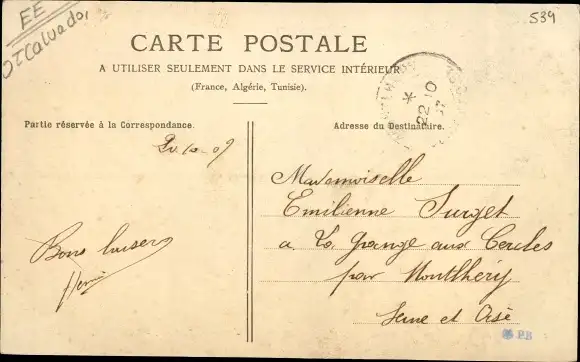 EE
Calvador
539
CARTE POSTALE
A UTILISER SEULEMENT DANS LE SERVICE INTÉRIEUR
(France, Algérie, Tunisie).
22 10
Partie réservée à la Correspondance.
Adresse du Destinataire.
Mademoiselle
Emilienne Surget
a La Grange aux Cercles
par Montlhéry
Seine et Oise
Bons baisers
Henri
PB